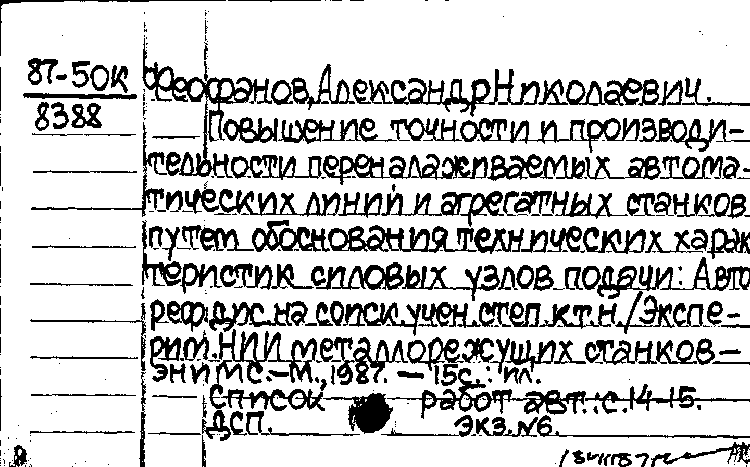 87-50к Феофанов, Александр Николаевич.
8388 Повышение точности и производи-
тельности переналаживаемых автома-
тических линий и агрегатных станков
путем обоснования технических харак
теристик силовых узлов подачи: Авто
реф.дис. на соиск.учен.степ.к.т.н./Экспе-
рим.НИИ металлорежущих станков-
ЭНИМС.-М.,1987. - 15с.: ил.
Список работ авт.:с.14-15.
ДСП. Экз.№6.